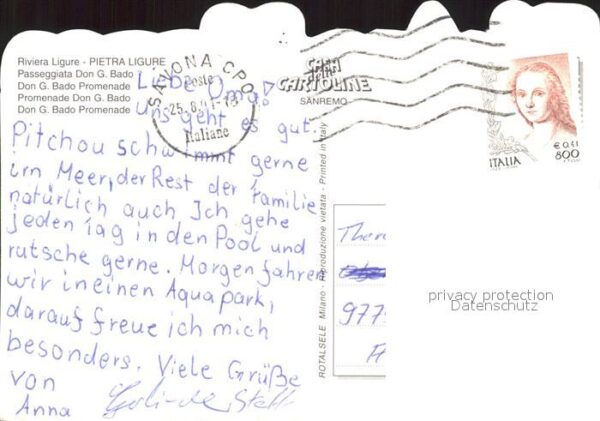 Riviera Ligure - PIETRA LIGURE
Passeggiata Don G. Bado
Don G. Bado Promenade
Promenade Don G. Bado
Don G. Bado Promenade
SAVONA CPO
Poste
25.8.
Italiane
CASA
della
CARTOLINE
SANREMO
ITALIA
€ 0,41
800
Liebe Oma!
Uns geht es gut.
Pitchou schwimmt gerne
im Meer, der Rest der Familie
natürlich auch Ich gehe
jeden Tag in den Pool und
rutsche gerne. Morgen fahren
wir in einen Aquapark,
darauf freue ich mich
besonders. Viele Grüße
von
Anna
ROTALSELE Milano - Riproduzione vietata - Printed in Italy
977
privacy protection
Datenschutz